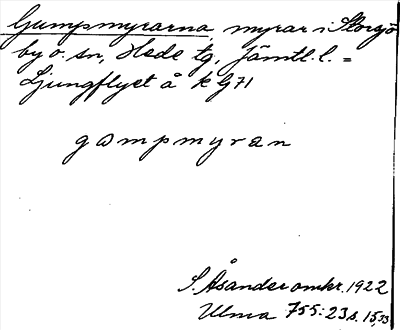 Gumpmyrarna myrar i Storsjö
by o. sn, Hede tg, Jämtl. l. =
Ljungflyet å k G71
gompmyran
S. Åsander omkr. 1922
Ulma 755:23 s. 15,33